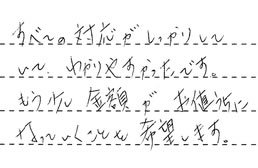 すべての対応がしっかりして
いて、わかりやすかったです。
もう少し金額がお値うちに
なっていくことも希望します。